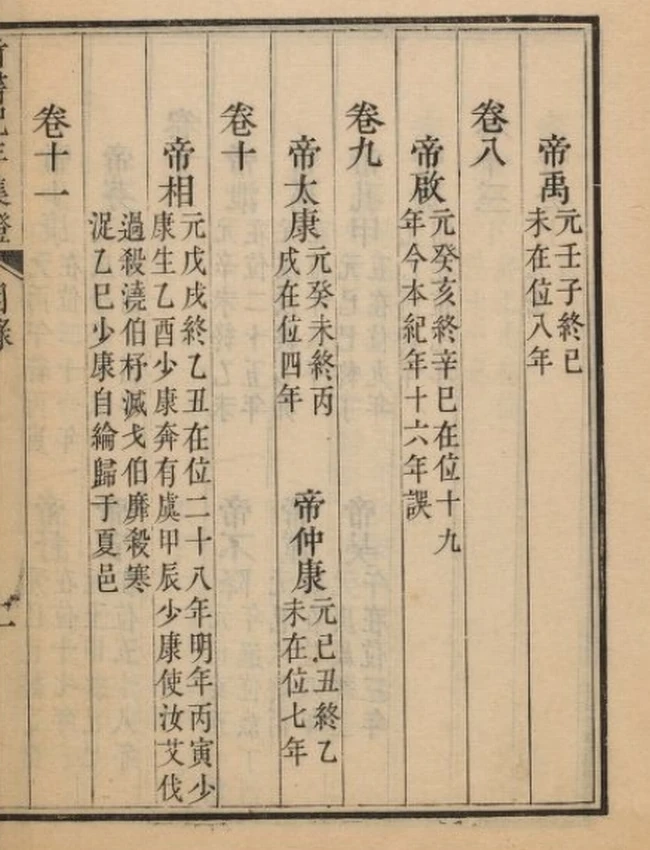 帝禹元壬子終己
未在位八年
卷八
帝啟元癸亥終辛巳在位十九
年今本紀年十六年誤
卷九
帝太康元癸未終丙
戌在位四年
帝仲康元己丑終乙
未在位七年
卷十
帝相元戊戌終乙丑在位二十八年明年丙寅少
康生乙酉少康奔有虞甲辰少康使汝艾伐
過殺澆伯杼滅戈伯靡殺寒
浞乙巳少康自綸歸于夏邑
卷十一